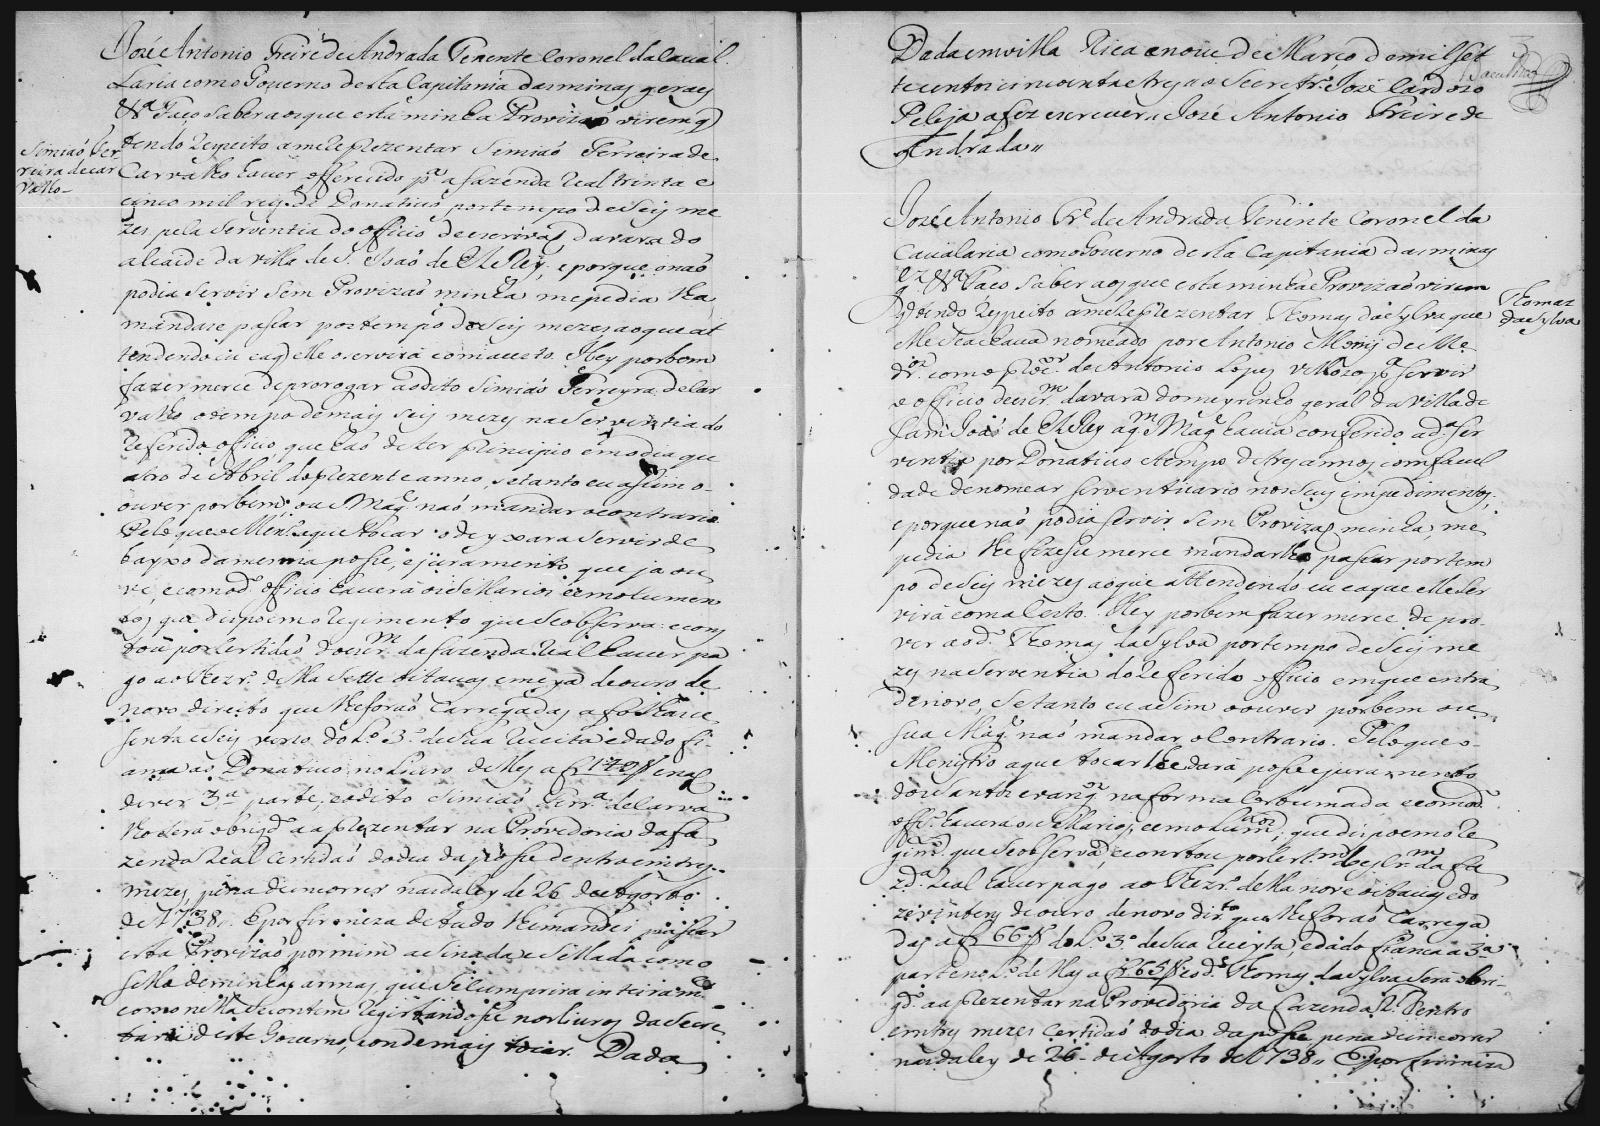 José Antonio Freire de Andrada Tenente Coronel da Caval
laria como Governo desta Capitania das minas geraes
&ª Faço saber aos que esta minha Provizaõ virem, q
Simiaõ Fer
reira de car
valho
tendo respeito a me reprezentar Simiaõ Ferreira de
Carvalho haver offerecido pª a fazenda Real trinta e
cinco mil reys de Donativo por tempo de Seis me
zes pela serventia do officio de escrivaõ da vara do
alcaide da villa de S. Joaõ de ElRey, e porque o naõ
podia servir sem Provizaõ minha me pedia lha
mandase passar por tempo de Seis mezes ao que at
tendendo eu e a q elle o servirá com aceto. Hey por bem
fazer merce de prorogar ao dito Simiaõ Ferreyra de Car
valho o tempo de mais seis mezes na serventia do
referido officio, que haõ de ter principio em o dia qua
atro de Abril do prezente anno, se tanto eu asim o
ouver por bem, ou S. Magᵉ naõ mandar o contrario
Pelo que o Menistro a que tocar o deyxara servir de
bayxo da mesma posse, e juramento que ja ou
ve, e com o dº officio haverá os sellarios e emolumen
tos que dispoem o regimento que se observa: e cons
tou por certidaõ do escrᵐ da fazenda Real haver pa
go ao Thezrº della sette oitavas e meya de ouro de
novo direito que lhe foraõ Carregadas a fo lha ce
senta e Seis verso do Lº 3º de sua receita e dado fi
ança ao Donativo no Livro dellas a f 172 e naõ
dever 3ª parte, e o dito Simiaõ Ferrª de Carva
lho sera obrigdº a aprezentar na Provedoria da fa
zenda Real certidaõ do dia da posse dentro em tres
mezes, pena de incorrer na da ley de 26 de Agosto
de 1738. E por firmeza de tudo lhe mandei passar
esta Provizaõ por mim asinada e sellada com o
sello de minhas armas, que se cumprirá inteiramᵉ
como nella se contem registandose nos livros da Secre
taria deste Governo, e onde mais tocar. Dada
3
Dada em villa Rica a nove de Março de mil set
tecentos e cincoenta e tres // o Secretrº José Cardozo
Peleja a fez escrever // José Antonio Freire de
Andrada //
José Antonio Frº de Andrada Tenente Coronel da
Cavalaria como Governo desta Capitania das minas
gˢ &ª Faço saber aos que esta minha Provizaõ virem
Thomaz
da Sylva
q tendo respeito a me reprezentar Thomas da Sylva que
elle se achava nomeado por Antonio Moniz de Me
drᵒˢ como procᵒʳ de Antonio Lopes Vellozo pª servir
o officio de escrᵐ da vara do meyrinho geral da villa de
Sam Joaõ de ElRey a qᵐ S Magᵉ havia conferido a dª ser
ventia por Donativo e tempo de tres annos com facul
dade de nomear serventuario nos seus empedimentos;
e porque naõ podia servir sem Provizaõ minha, me
pedia lhe fizesse merce mandarlha passar por tem
po de Seis mezes ao que attendendo eu e a que elle ser
virá com aCerto. Hey por bem fazer merce de pro
ver ao dº Thomas da Sylva por tempo de Seis me
zes na Serventia do referido officio em que entra
de novo, se tanto eu asim o ouver por bem ou
sua Magᵉ naõ mandar o contrario. Pelo que o
Menistro a que tocar lhe dara posse e juramento
dos Santos evangᵒˢ na forma Costumada e com o dº
offº. haverá os sellarios, e emolumᵗᵒˢ, que dispoem o re
gimᵗᵒ. que se observa, e constou por certᵐ do escrᵐ da fa
zdª Real haver pago ao Thezrº della nove oitavas e do
ze vintens de ouro de novo dirᵗᵒ que lhe foraõ Carrega
das a f 66 do Lº 3º de sua receyta, e dado fiança a 3ª
parte no Lº dellas a f 265 e o dº Thomas da Sylva sera obri
gdº a aprezentar na Provedoria da fazenda Rˡ dentro
em tres mezes Certidaõ do dia da posse pena de incorrer
na da ley de 26 de Agosto de 1738 // E por firmeza